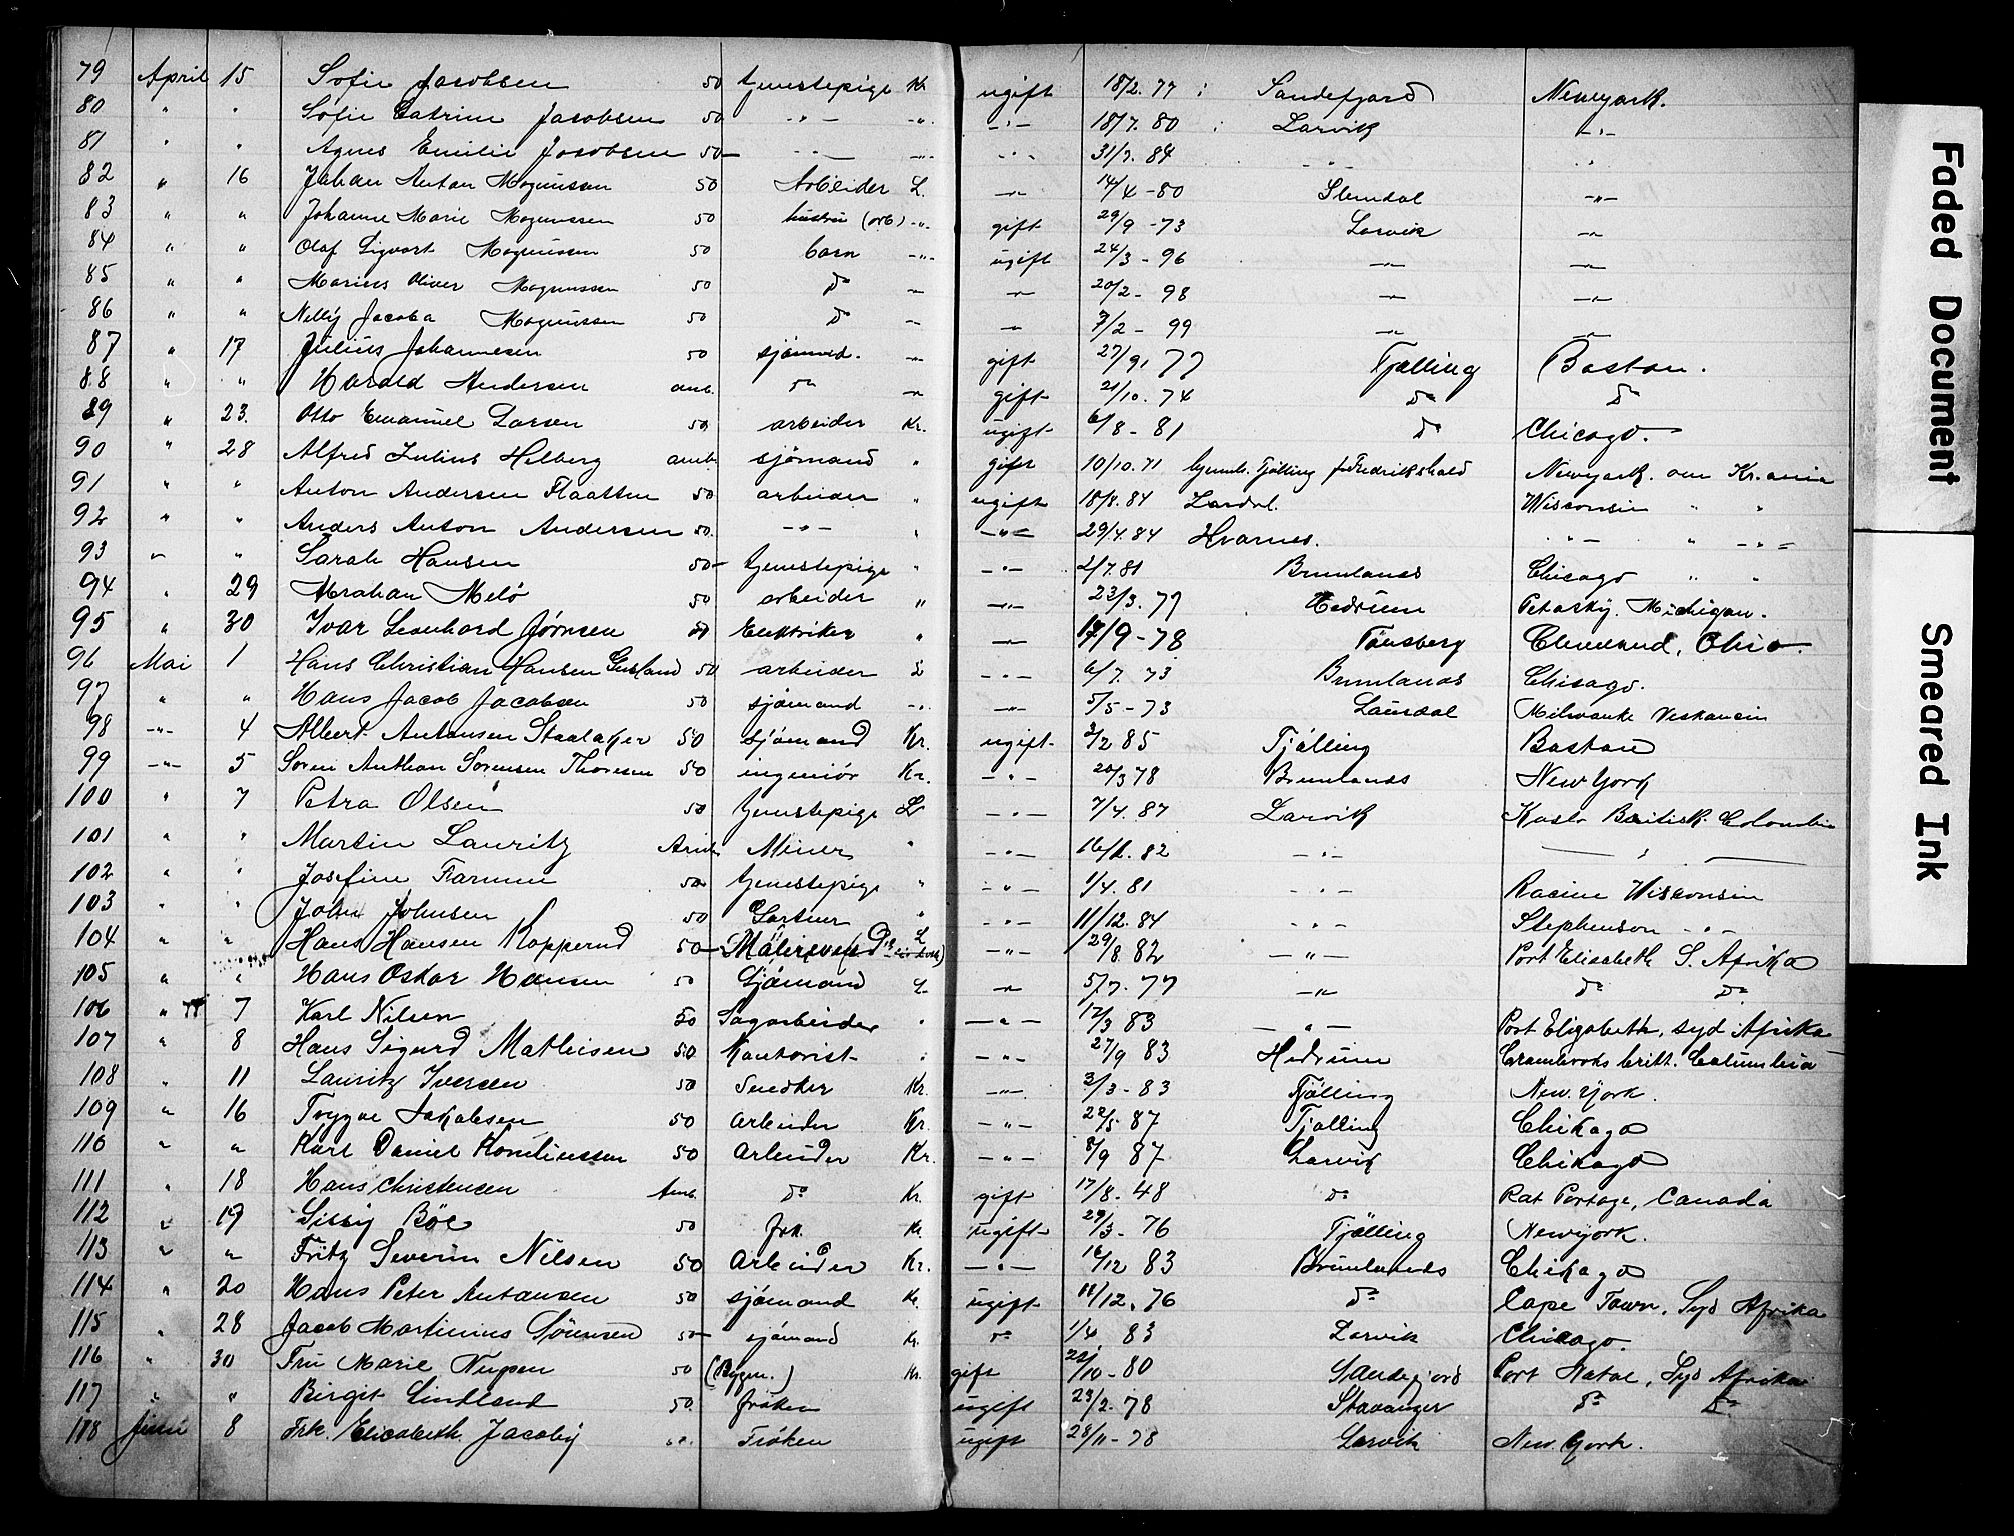 79 April 15 Sofie Jacobsen 50 tjenestepige Kr ugift 18/2. 77 Sandefjord Newyork.
80 " " Sofie Catrine Jacobsen 50 -"- -"- -"- 18/7. 80 Larvik -"-
81 " " Agnes Emilie Jacobsen 50 -"- -"- -"- 31/7. 84 -"- -"-
82 " 16 Johan Anton Magnussen 50 Arbeider L. -"- 14/4 - 80 Slemdal -"-
83 " " Johanne Marie Magnussen 50 hustru (arb) -"- gift 29/9 - 73 Larvik -"-
84 " " Olaf Sigvart Magnussen 50 barn -"- ugift 24/3 - 96 -"- -"-
85 " " Marius Oliver Magnussen 50 do -"- -"- 20/2 - 98 -"- -"-
86 " " Nelly Jacoba Magnussen 50 do -"- -"- 7/2 - 99 -"- -"-
87 " 17 Julius Johannesen 50 sjømand. -"- gift 27/9, 77 Tjølling Boston.
88 " " Harald Andersen amb. do -"- gift 21/10. 74 do do
89 " 23. Otto Emanuel Larsen 50 arbeider Kr. ugift 6/8 - 81 do Chicago.
90 " 28 Alfred Julius Helberg amb. sjømand " gift 10/10. 71 Tjølling Fredrikshald Newyork. over Kr.ania
91 " " Anton Andersen Flaatten 50 arbeider " ugift 18/8. 84 Lardal. Wisconsin " "
92 " " Anders Anton Andersen 50. -"- " -"- 29/4. 84 Hvarnes. -"- " -"-
93 " " Sarah Hansen 50 tjenestepige " -"- 2/7. 81 Brunlanes Chicago " "
94 " 29 Abraham Melø 50 arbeider " -"- 23/3. 77 Hedrum Petosky. Michigan.
95 " 30 Ivar Leonhard Jørnsen 50 Elektriker " -"- 17/9 - 78 Tønsberg Cleveland, Ohio.
96 Mai 1 Hans Christian Hansen 50 arbeider L -"- 6/7. 73 Brunlanes Chicago.
97 " " Hans Jacob Jacobsen 50 sjømand -"- -"- 5/5 - 73 Laurdal Milwauke Viskansin
98 -"- 4 Albert Antonsen Staalaker 50 sjømand Kr. ugift 3/2 85 Tjølling Boston
99 -"- 5 Søren Anthon Sørensen Thoresen 50 ingeniør Kr. -"- 20/3 78 Brunlanes New York
100 " 7 Petra Olsen 50 tjenestepige L -"- 7/4. 87 Larvik Kaslo Britisk. Colombia
101 " " Martin Lauritz Miner " -"- 82 -"- "
102 " " Josefine Farmen 50 tjenestepige " -"- 1/4. 81 -"- Racine Wisconsin
103 " " John Johnsen 50 Gartner " -"- 11/12. 84 -"- Stephenson -"-
104 " " Hans Hansen Kopperud 50 L -"- 29/8. 82 -"- Port Elisabeth S. Afrika
105 " " Hans Oskar Hansen 50 Sjømand L -"- 5/7. 77 -"- do do
106 " 7 Karl Nilsen 50 Sagarbeider " -"- 12/3 83 -"- Port Elizabeth, syd Afrika
107 " 8 Hans Sigurd Mathisen 50 Kontorist " -"- 27/9 83 Hedrum Crambrooks britt. Columbia
108 " 11 Lauritz Iversen 50 Snedker Kr. -"- 3/3 - 83 Tjølling New York.
109 " 16 Trygve Jakobsen 50 Arbeider Kr. -"- 22/5 - 87 Tjølling Chikago
110 " " Karl Daniel Korneliussen 50 Arbeider Kr. -"- 8/9 87 Larvik Chikago
111 " 18 Hans Christensen Amb. do Kr. gift 17/8. 48 do Rat Portage, Canada
112 " 19 Sissy Böe 50 frk. Kr ugift 29/3. 76 Tjølling Newyork.
113 " " Fritz Severin Nilsen 50 Arbeider Kr. -"- 16/12 83 Brunlanes Chikago
114 " 20 Hans Peter Antonsen 50 sjømand Kr. ugift 11/12. 76 do Cape Town, Syd Afrika
115 " 28 Jacob Martinius Sørensen 50 sjømand Kr. do 1/4 83 Larvik Chicago.
116 " 30 Fru Marie 50 Kr. gift 22/10 - 80 Sandefjord Port Natal, Syd Afrika
117 " " Birgit Lindland 50. frøken ugift 23/2. 78 Stavanger do do
118 Juni 8 Frk. Elisabeth Jacoby Frøken ugift 28/11 - 78 Larvik New York.
Faded Document
Smeared Ink